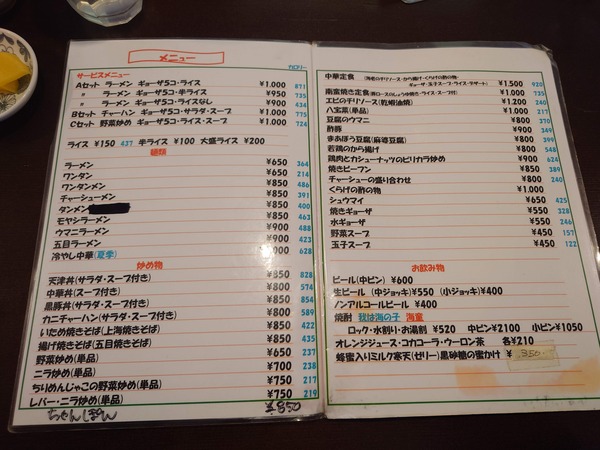 メニュー
カロリー
サービスメニュー
Aセット ラーメン ギョーザ5コ・ライス ¥1.000 871
〃 ラーメン ギョーザ5コ・半ライス ¥950 735
〃 ラーメン ギョーザ5コ・ライスなし ¥900 434
Bセット チャーハン ギョーザ5コ・サラダ・スープ ¥1.000 775
Cセット 野菜炒め ギョーザ5コ・ライス・スープ ¥1.000 724
ライス ¥150 437 半ライス ¥100 大盛ライス ¥200
麺類
ラーメン ¥650 364
ワンタン ¥650 214
ワンタンメン ¥850 486
チャーシューメン ¥850 463
タンメン ¥850 400
モヤシラーメン ¥850 488
ウマニラーメン ¥900 488
五目ラーメン ¥900 423
冷やし中華(夏季) ¥1.000 628
炒め物
天津丼(サラダ・スープ付き) ¥850 828
中華丼(スープ付き) ¥800 574
黒豚丼(サラダ・スープ付き) ¥850 854
カニチャーハン(サラダ・スープ付き) ¥850 800
いため焼きそば(上海焼きそば) ¥850 422
揚げ焼きそば(五目焼きそば) ¥850 435
野菜炒め(単品) ¥650 237
ニラ炒め(単品) ¥700 238
ちりめんじゃこの野菜炒め(単品) ¥750 217
レバー・ニラ炒め(単品) ¥750 219
ちゃんぽん ¥850
中華定食 (海老のチリソース・から揚げ・くらげの酢の物・
ギョーザ・玉子スープ・ライス・デザート) ¥1.500 920
南蛮焼き定食(豚ロースのしょうゆ焼き・ライス・スープ付) ¥1.000 735
エビのチリソース(乾蝦油焼) ¥1.200 240
八宝菜(単品) ¥1.000 217
豆腐のウマニ ¥800 370
酢豚 ¥900 349
まあぼう豆腐(麻婆豆腐) ¥800 399
若鶏のから揚げ ¥800 548
鶏肉とカシューナッツのピリカラ炒め ¥1.000
焼きビーフン ¥800 389
チャーシューの盛り合わせ ¥800 240
くらげの酢の物 ¥1.000
シュウマイ ¥650 425
焼きギョーザ ¥550 328
水ギョーザ ¥550 246
野菜スープ ¥450 157
玉子スープ ¥450 122
お飲み物
ビール(中ビン) ¥600
生ビール (中ジョッキ)¥550 (小ジョッキ)¥400
ノンアルコールビール ¥400
焼酎 我は海の子 海童
ロック・水割り・お湯割 ¥520 中ビン¥2100 小ビン¥1050
オレンジジュース・コカコーラ・ウーロン茶 各¥210
蜂蜜入りミルク寒天(ゼリー)黒砂糖の蜜かけ ¥ 350